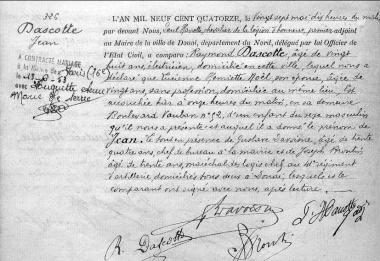 326
Dascotte
Jean
A CONTRACTÉ MARIAGE
à la Mairie de Paris (16e)
le 53
avec Huguette
Marie
L'AN MIL NEUF CENT QUATORZE, le vingt sept mai dix heures du matin
par devant Nous, chevalier de la légion d'honneur, premier adjoint
au Maire de la ville de Douai, département du Nord, délégué par lui Officier de
l'État Civil, a comparu Raymond Dascotte, âgé de vingt
huit ans, électricien, domicilié en cette ville, lequel nous a
déclaré que Lucienne Henriette Noël, son épouse, âgée de
vingt ans, sans profession, domiciliée au même lieu, est
accouchée hier à onze heures du matin, en sa demeure
Boulevard Vauban n° 92, d'un enfant du sexe masculin
qu'il nous a présenté et auquel il a donné le prénom de
Jean. le tout en présence de Gustave âgé de trente
quatre ans, chef de bureau à la mairie et de Joseph
âgé de trente ans, maréchal des logis chef au régiment
d'artillerie domiciliés tous deux à Douai, lesquels et le
comparant ont signé avec nous, après lecture.
R. Dascotte